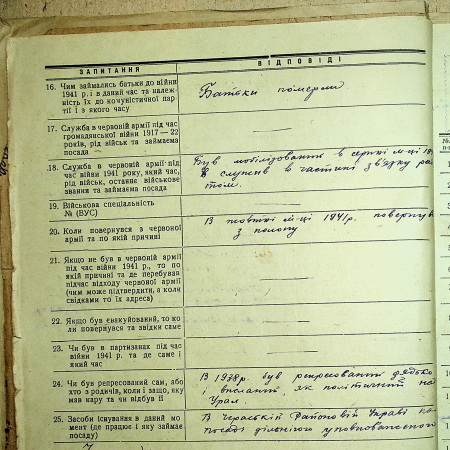 ЗАПИТАННЯ
ВІДПОВІДІ
16. Чим займались батьки до війни
1941 р. і в даний час та належ-
ність їх до комуністичної пар-
тії і з якого часу
Батьки померли
17. Служба в червоній армії під час
громадянської війни 1917—22
років, рід військ та займаєма
посада
18. Служба в червоній армії під
час війни 1941 року, який час,
рід військ, останнє військове
звання та займаєма посада
Був мобілізований в серпні м-ці 19
служив в частині зв'язку
19. Військова спеціальність
№ (ВУС)
20. Коли повернувся з червоної
армії та по якій причині
В жовтні м-ці 1941 р. повернув
з полону
21. Якщо не був в червоній армії
під час війни 1941 р., то по
якій причині та де перебував
підчас відходу червоної армії
(чим може підтвердити, а коли
свідками то їх адреса)
22. Якщо був евакуйований, то ко
ли повернувся та звідки саме
23. Чи був в партизанах під час
війни 1941 р. та де саме і
який час
24. Чи був репресований сам, або
хто з родичів, коли і защо, яку
мав кару та чи відбув її
В 1938 р. був репресований дядько
і висланий, як політичний на
Урал.
25. Засоби існування в даний мо
мент (де працює і яку займає
посаду)
В Районовій Управі на
посаді дільнічого уповноваженого